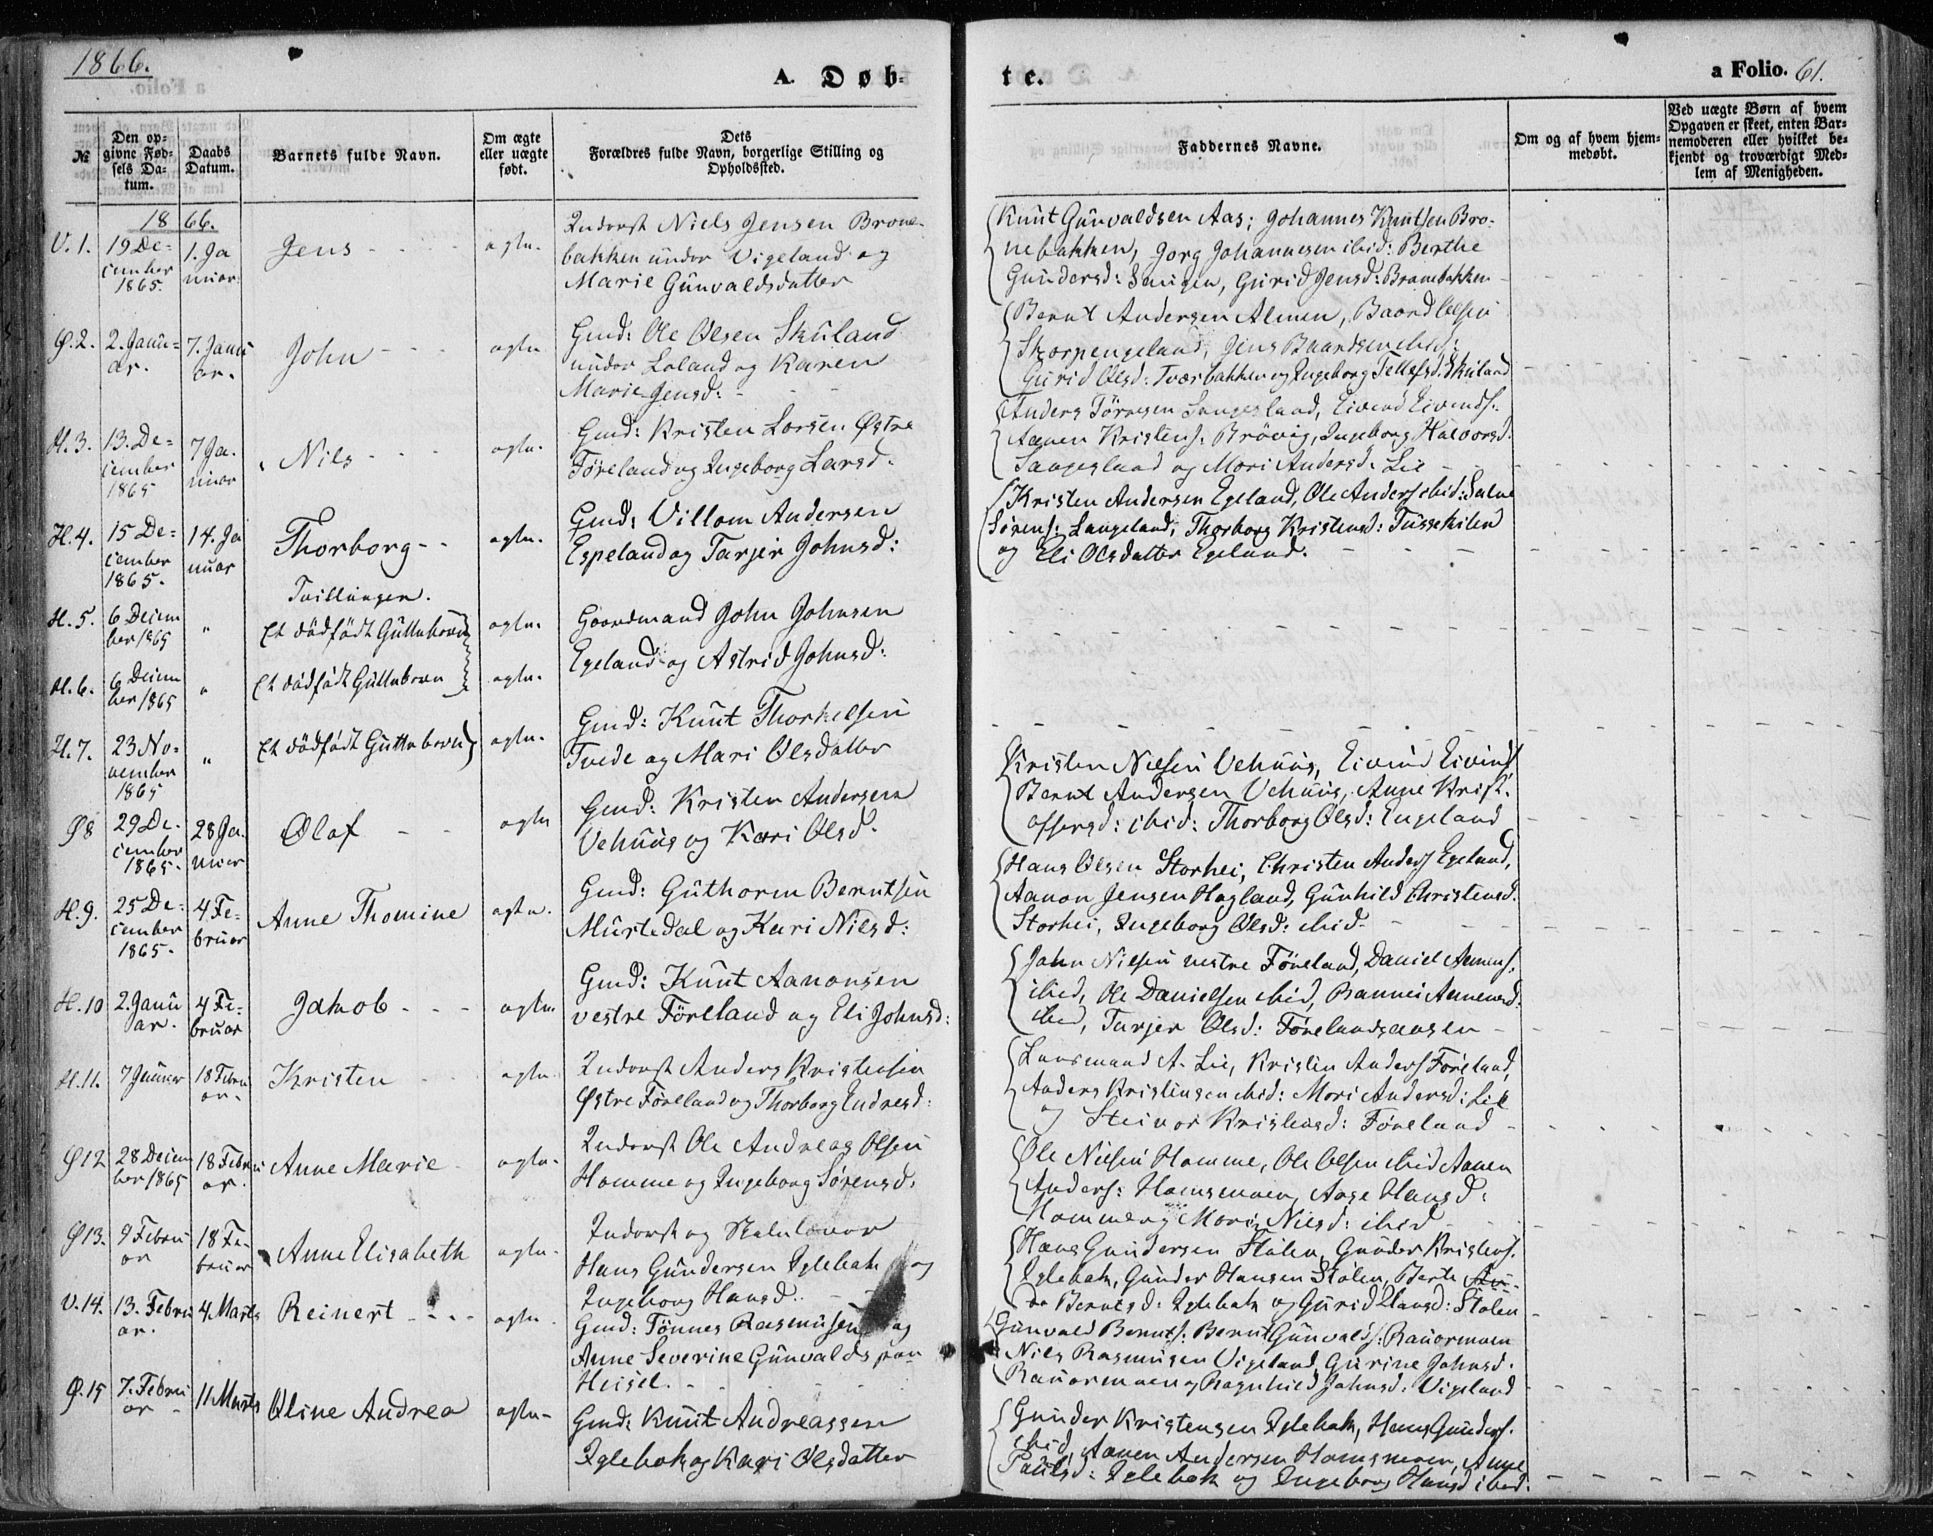 1866.
A. Døb-
te.
a Folio. 61.
№
Den op-
givne Fød-
sels Da-
tum.
Daabs
Datum.
Barnets fulde Navn.
Om ægte
eller uægte
født.
Dets
Forældres fulde Navn, borgerlige Stilling og
Opholdssted.
Faddernes Navne.
Om og af hvem hjem-
medøbt.
Ved uægte Børn af hvem
Opgaven er skeet, enten Bar-
nemoderen eller hvilket be-
kjendt og troværdigt Med-
lem af Menigheden.
1866.
V. 1.
19 De-
cember
1865.
1. Ja
nuar
Jens
ægte.
Inderst Niels Jensen Brone-
bakken under Vigeland og
Marie Gunvaldsdatter
Knut Gunvaldsen Aas, Johannes Knutsen Bro-
nebakken, Jørg Johannesen ibid: Berthe
Gundersd: Saugen, Gurid Jensd: Bronebakken
Ø. 2.
2. Janu-
ar.
7. Janu
ar.
John
ægte.
Gmd: Ole Olsen Skuland
under Loland og Karen
Marie Jensd:
Bernt Andersen Almen, Baard Olsen
Skorpengeland, Jens Baardsen ibid:
Gurid Olsd: Tværbakken og Ingeborg Tellefsd: Skuland
H. 3.
13. De-
cember
1865
7 Ja-
nuar
Nils
ægte.
Gmd: Kristen Larsen Østre
Føreland og Ingeborg Larsd:
Anders Tørresen Langeland, Eivind Eivinds:
Aanen Kristens: Brøvig, Ingeborg Halvorsd:
Langeland og Mari Andersd: Lie
H. 4.
15 De-
cember
1865.
14. Ja
nuar
Thorborg
ægte.
Gmd: Villom Andersen
Espeland og Tarjer Johnsd:
Kristen Andersen Egeland, Ole Anders ibid: Salve
Sørens: Langeland, Thorborg Kristensd: Tussekilen
og Eli Olsdatter Egeland.
Tvillinger.
H. 5.
6 Decem
ber 1865
"
Et dødfødt Guttebarn
ægte.
Gaardmand John Johnsen
Egeland og Astrid Johnsd:
H. 6.
6 Decem
ber 1865
"
Et dødfødt Guttebarn
ægte.
H. 7.
23 No-
vember
1865
"
Et dødfødt Guttebarn
ægte.
Gmd: Knut Thorkelsen
Tvede og Mari Olsdatter
Ø 8
29 De-
cember
1865.
28 Ja-
nuar
Olaf
ægte
Gmd: Kristen Andersen
Vehuus og Kari Olsd.
Kristen Nielsen Vehuus, Eivind Eivins
Bernt Andersen Vehuus, Anne Krist-
offersd: ibid: Thorborg Olsd: Engeland
H. 9.
25 De-
cember
1865.
4. Fe-
bruar
Anne Thomine
ægte.
Gmd: Guthorm Berntsen
Murtedal og Kari Nilsd:
Hans Olsen Storhei, Christen Anders Egeland,
Aanon Jensen Hagland, Gunhild Christensd:
Storhei, Ingeborg Olsd: ibid
H. 10
2. Janu
ar.
4 Fe-
bruar
Jakob
ægte.
Gmd: Knut Aanonsen
vestre Føreland og Eli Johnsd:
John Nilsen vestre Føreland, Daniel Aanens.
ibid, Ole Danielsen ibid, Rannei Aanensd:
ibid, Tarjer Olsd: Førelandsaasen
H. 11.
7 Januar
18 Febru
ar.
Kristen
ægte
Inderst Anders Kristensen
Østre Føreland og Thorborg Endresd:
Lensmand A. Lie, Kristen Anders Føreland,
Anders Kristensen ibid: Mari Andersd: Lie
og Steinor Kristensd: Føreland
Ø 12
28 Decem
ber 1865
18 Febru
ar.
Anne Marie
ægte.
Inderst Ole Andreas Olsen
Homme og Ingeborg Sørensd.
Ole Nilsen Homme, Ole Olsen ibid Aanen
Anders: Homsmoen, Aase Hansd:
Homme og Mari Nilsd: ibid
Ø 13.
9 Febru
ar
18 Fe-
bruar
Anne Elisabeth
ægte.
Inderst og Skolelærer
Hans Gundersen Iglebæk og
Ingeborg Hansd:
Hans Gundersen Stølen, Gunder Kristens.
Iglebæk, Gunder Hansen Stølen, Berte An-
da Berntsd: Iglebæk og Gurid Hansd: Stølen
V. 14.
13. Febru
ar.
4 Marts
Reinert
ægte.
Gmd: Tønnes Rasmusen og
Anne Severine Gunvaldsd paa
Heisel.
Gunvald Bernts: Bernt Gunvalds: Rauormoen
Nils Rasmusen Vigeland, Gurine Johnsd.
Rauormoen og Ragnhild Johnsd: Vigeland
Ø. 15
7. Febru
ar
11 Marts
Oline Andrea
ægte
Gmd: Knut Andreassen
Iglebæk og Kari Olsdatter
Gunder Kristensen Iglebæk, Hans Gunders.
ibid, Aanen Andersen Homsmoen, Anne
Paulsd: Iglebæk og Ingeborg Hansd ibid.